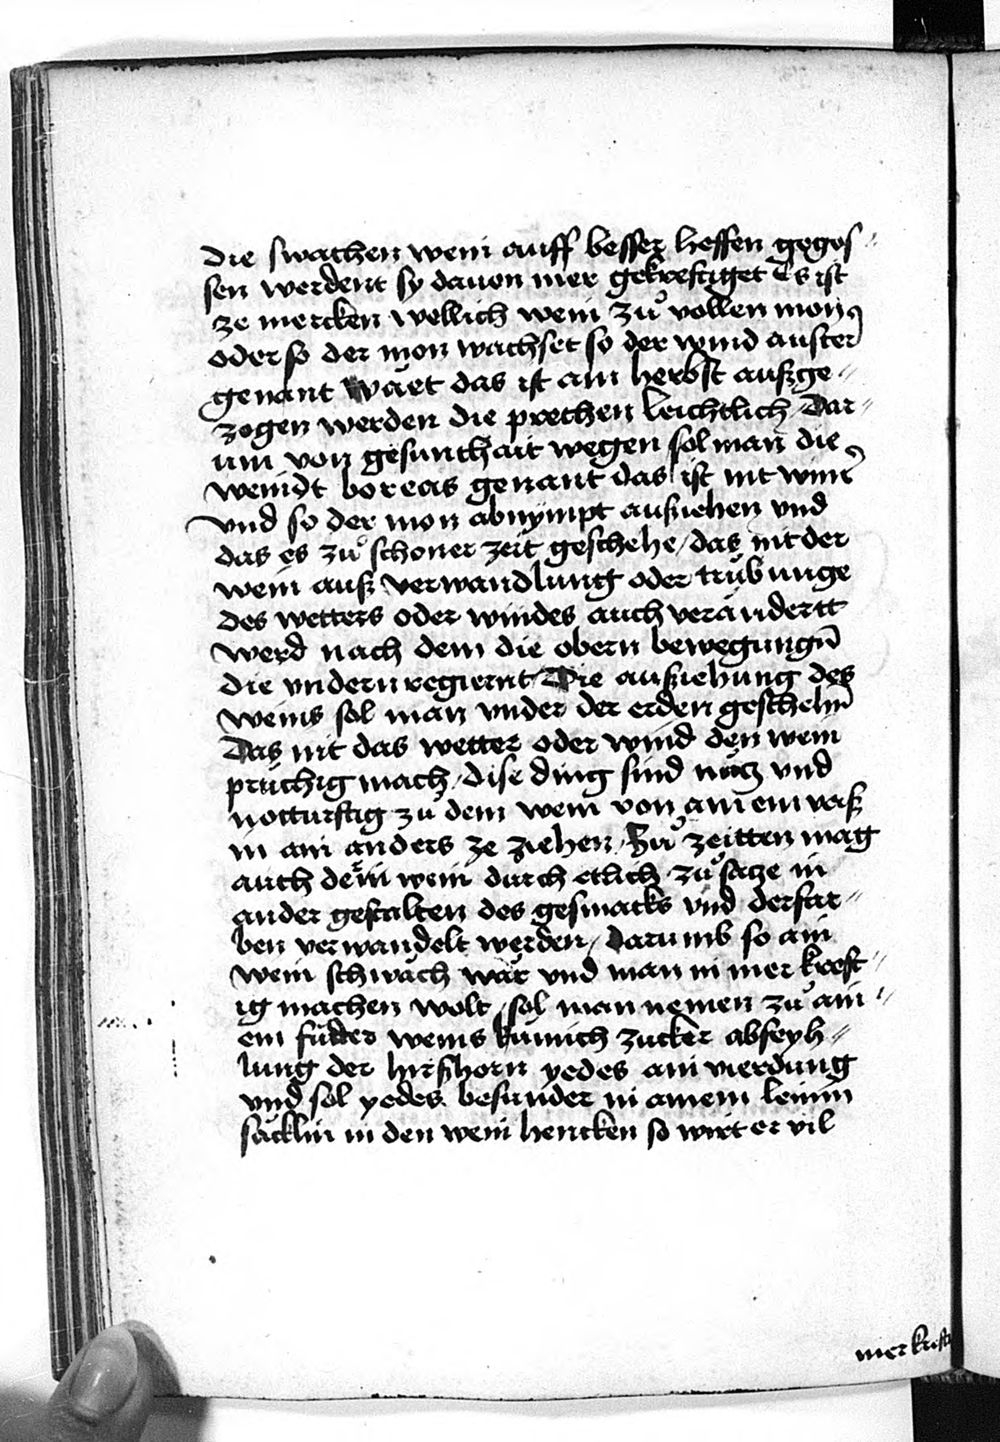 die swachen wein auff besser heffen gegos⸗
sen werdent sy dauon mer gekreftiget Es ist
ze mercken wellich wein zů vollen mon
oder so der mon wachset so der wind auster
genant wäet das ist am herbst außge⸗
zogen werden die prechen leichtlich Dar⸗
um von gesunthait wegen sol man die
weindt boreas genant das ist mt winͤ
vnd so der mon abnympt ausziehen vnd
das es zů schoner zeit geschehe / das nit der
wein auß verwandlung oder trübunge
des wetters oder windes auch verändertt
werd nach dem die obern bewegungn̄
die vndern regiernt Die ausziehung des
weins sol man vnder der erden geschehn̄
Das nit das wetter oder wind den wein
prüchig mach / dise ding sind nütz vnd
notturftig zů dem wein von ainem vaß
in ain anders ze ziehen / Zů zeitten mag
auch der wein durch etlich zůsatze in
ander gestalten des gesmacks vnd derfar⸗
ben verwandelt werden / Darumb so ain
wein schwach wär vnd man in mer kreft⸗
ig machen wolt / sol man nemen zů ain⸗
em füder weins kümich zucker abseyh⸗
lung der hirßhorn yedes ain vierdung
vnd sol yedes besunder in ainem leinin
säcklin in den wein hencken so wirt er vil
mer kreft